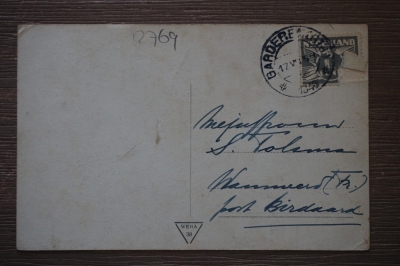 2769
BARDEREN
17 V
Mejuffrouw
S. Tolsma
Wanswerd (Fr.)
post Birdaard
WBHA